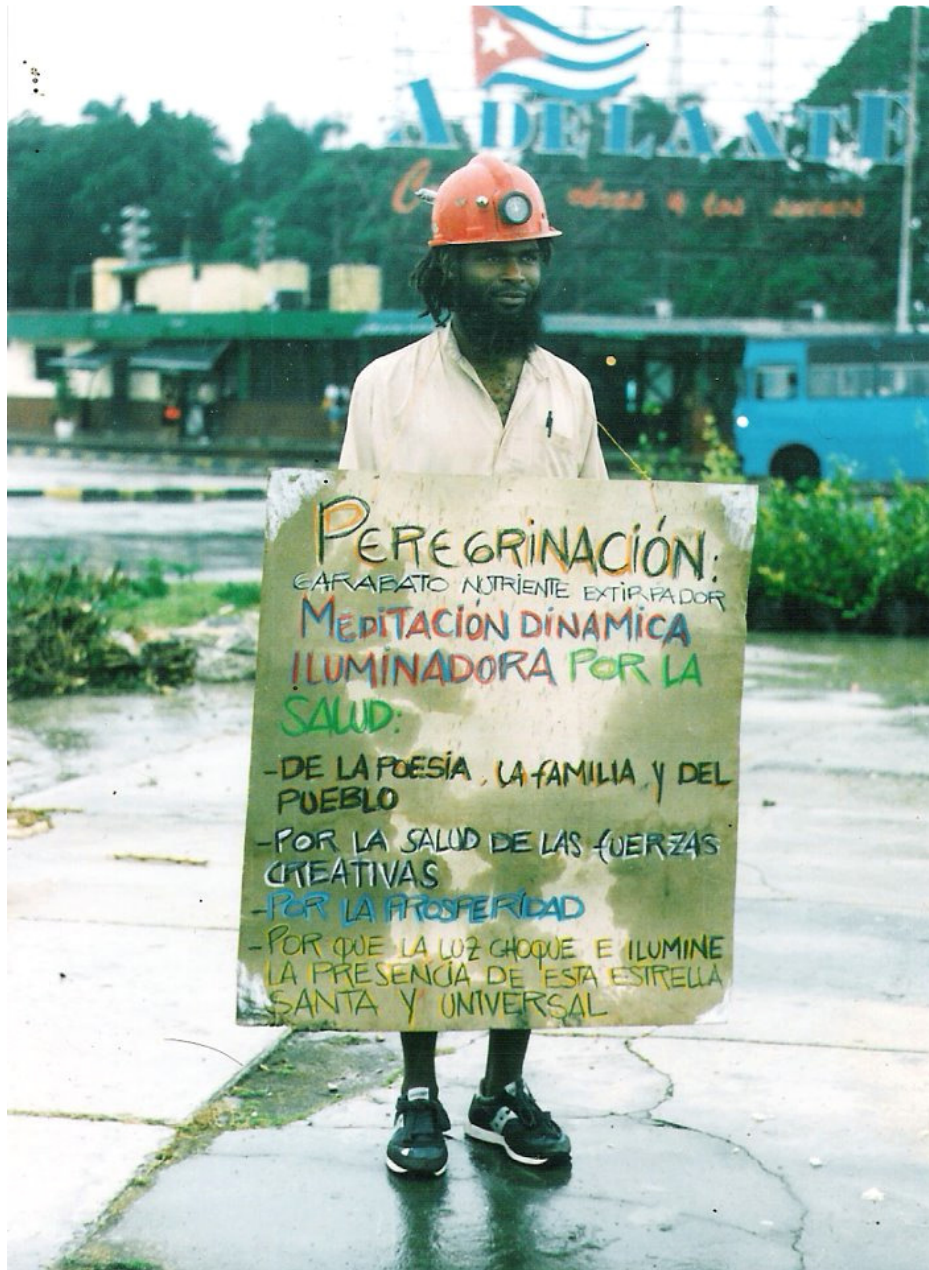 ADELANTE
obras y los sueños
PEREGRINACIÓN:
GARABATO NUTRIENTE EXTIRPADOR
MEDITACIÓN DINAMICA
ILUMINADORA POR LA
SALUD:
-DE LA POESÍA, LA fAMILIA Y DEL
PUEBLO
-POR LA SALUD DE LAS fUERZAS
CREATIVAS
-POR LA PROSPERIDAD
-POR QUE LA LUZ CHOQUE E ILUMINE
LA PRESENCIA DE ESTA ESTRELLA
SANTA Y UNIVERSAL